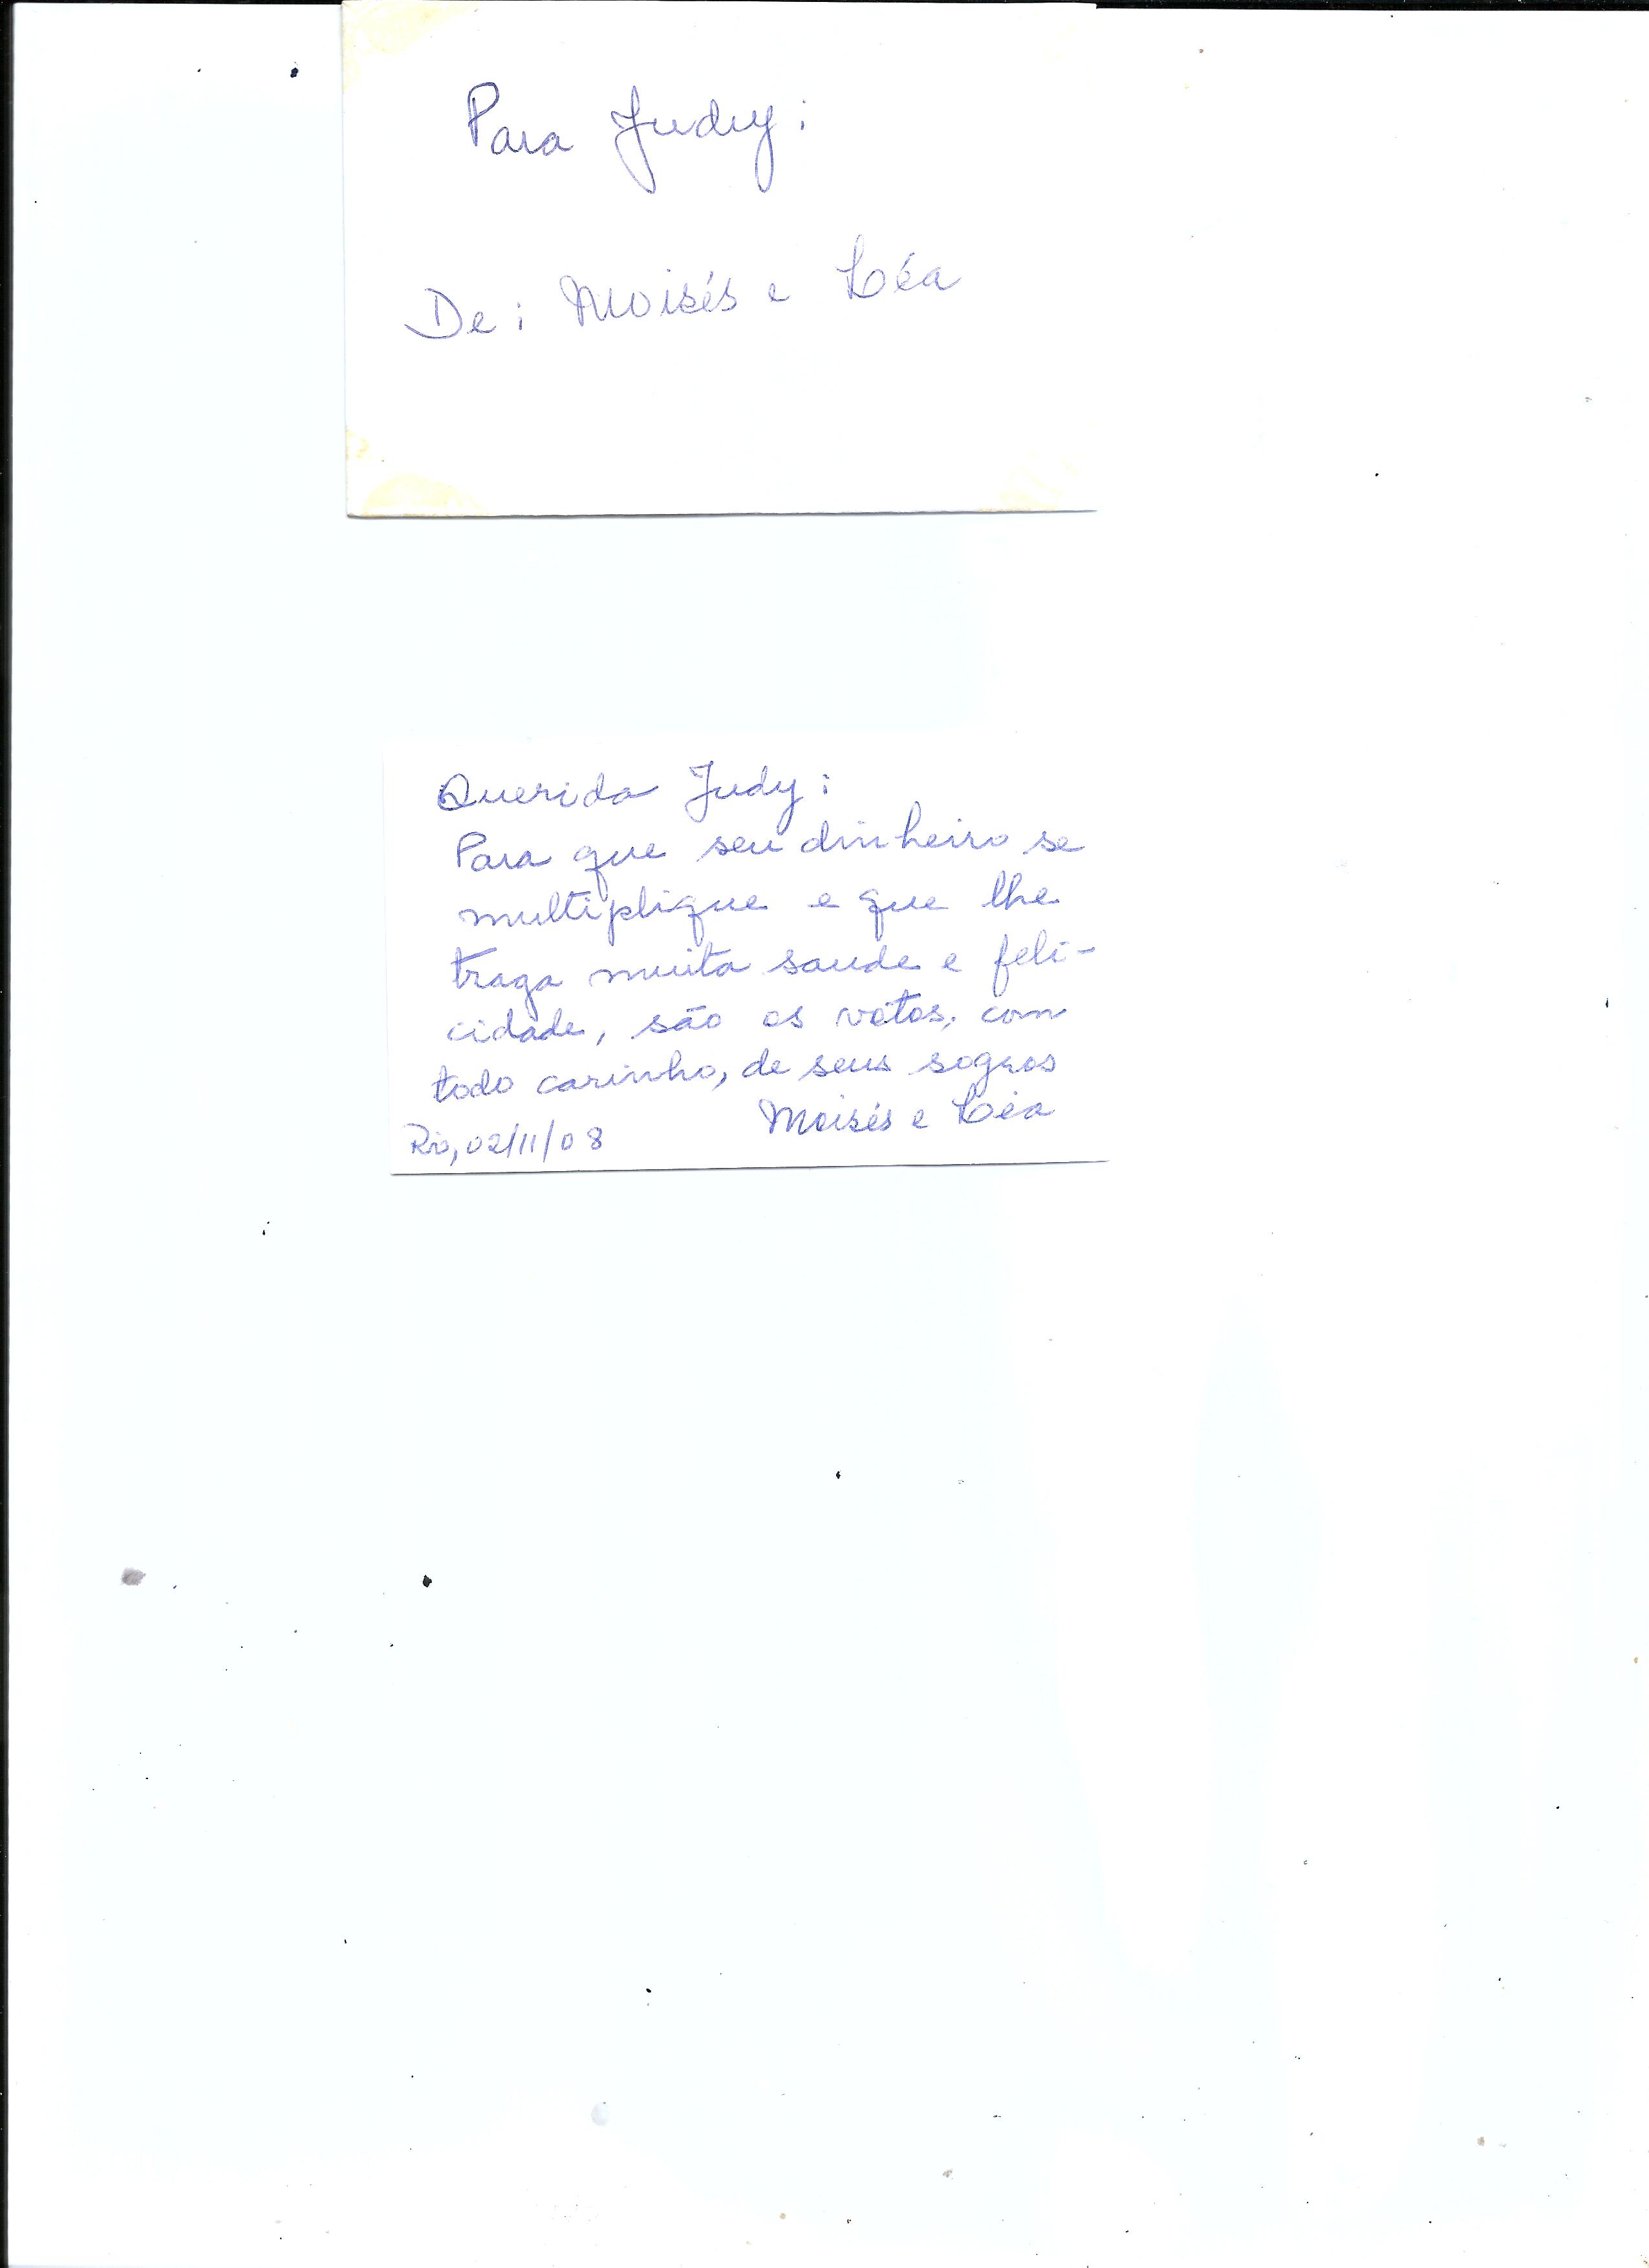 Para Judy:
De: Moisés e Léa
Querida Judy:
Para que seu dinheiro se
multiplique e que lhe
traga muita saude e feli-
cidade, são os votos, com
todo carinho, de seus sogros
Moisés e Léa
Rio, 02/11/08